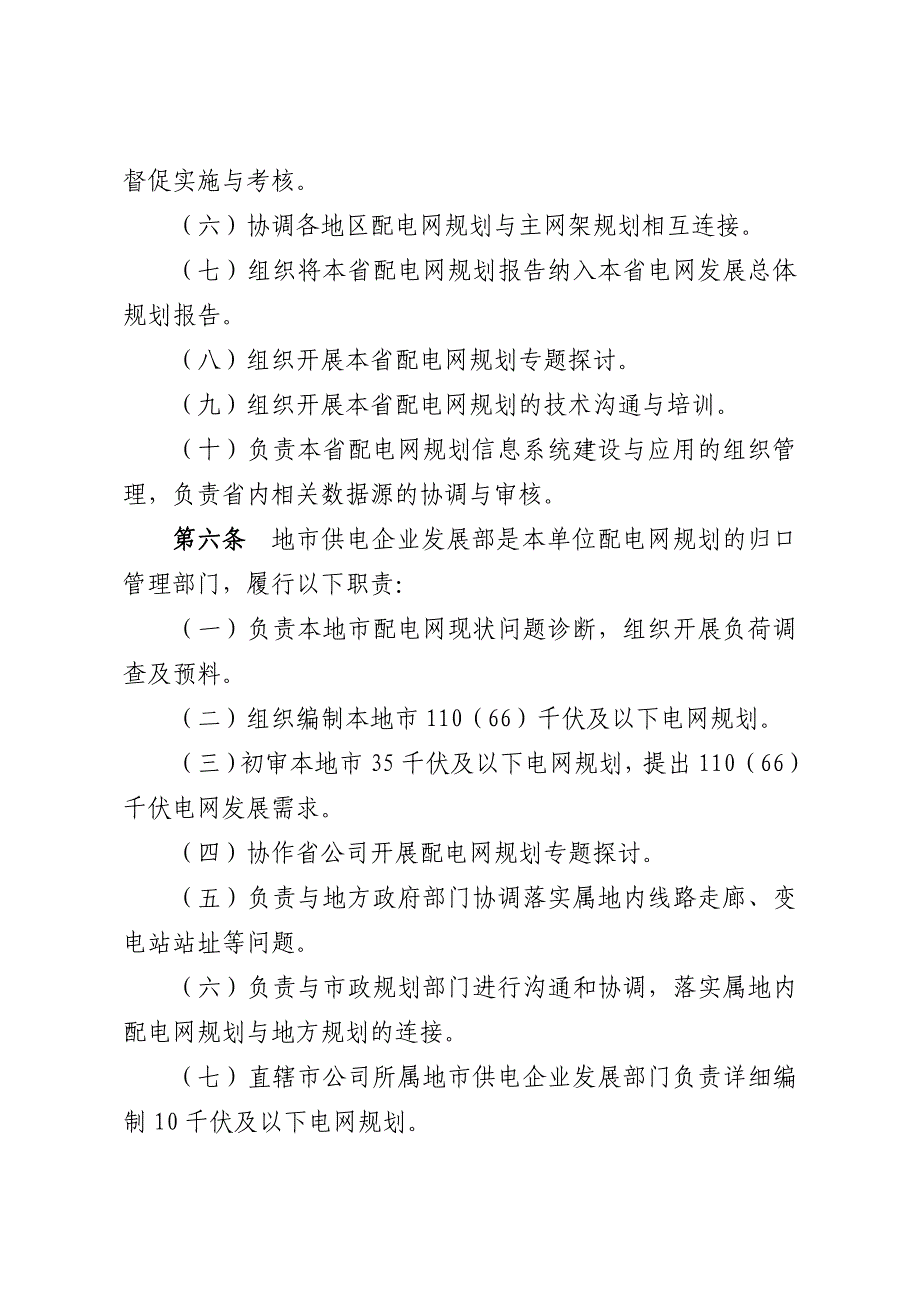 督促实施与考核。
（六）协调各地区配电网规划与主网架规划相互连接。
（七）组织将本省配电网规划报告纳入本省电网发展总体
规划报告。
（八）组织开展本省配电网规划专题探讨。
（九）组织开展本省配电网规划的技术沟通与培训。
（十）负责本省配电网规划信息系统建设与应用的组织管
理，负责省内相关数据源的协调与审核。
第六条　地市供电企业发展部是本单位配电网规划的归口
管理部门，履行以下职责：
（一）负责本地市配电网现状问题诊断，组织开展负荷调
查及预料。
（二）组织编制本地市 110（66）千伏及以下电网规划。
（三）初审本地市 35 千伏及以下电网规划，提出 110（66）
千伏电网发展需求。
（四）协作省公司开展配电网规划专题探讨。
（五）负责与地方政府部门协调落实属地内线路走廊、变
电站站址等问题。
（六）负责与市政规划部门进行沟通和协调，落实属地内
配电网规划与地方规划的连接。
（七）直辖市公司所属地市供电企业发展部门负责详细编
制 10 千伏及以下电网规划。